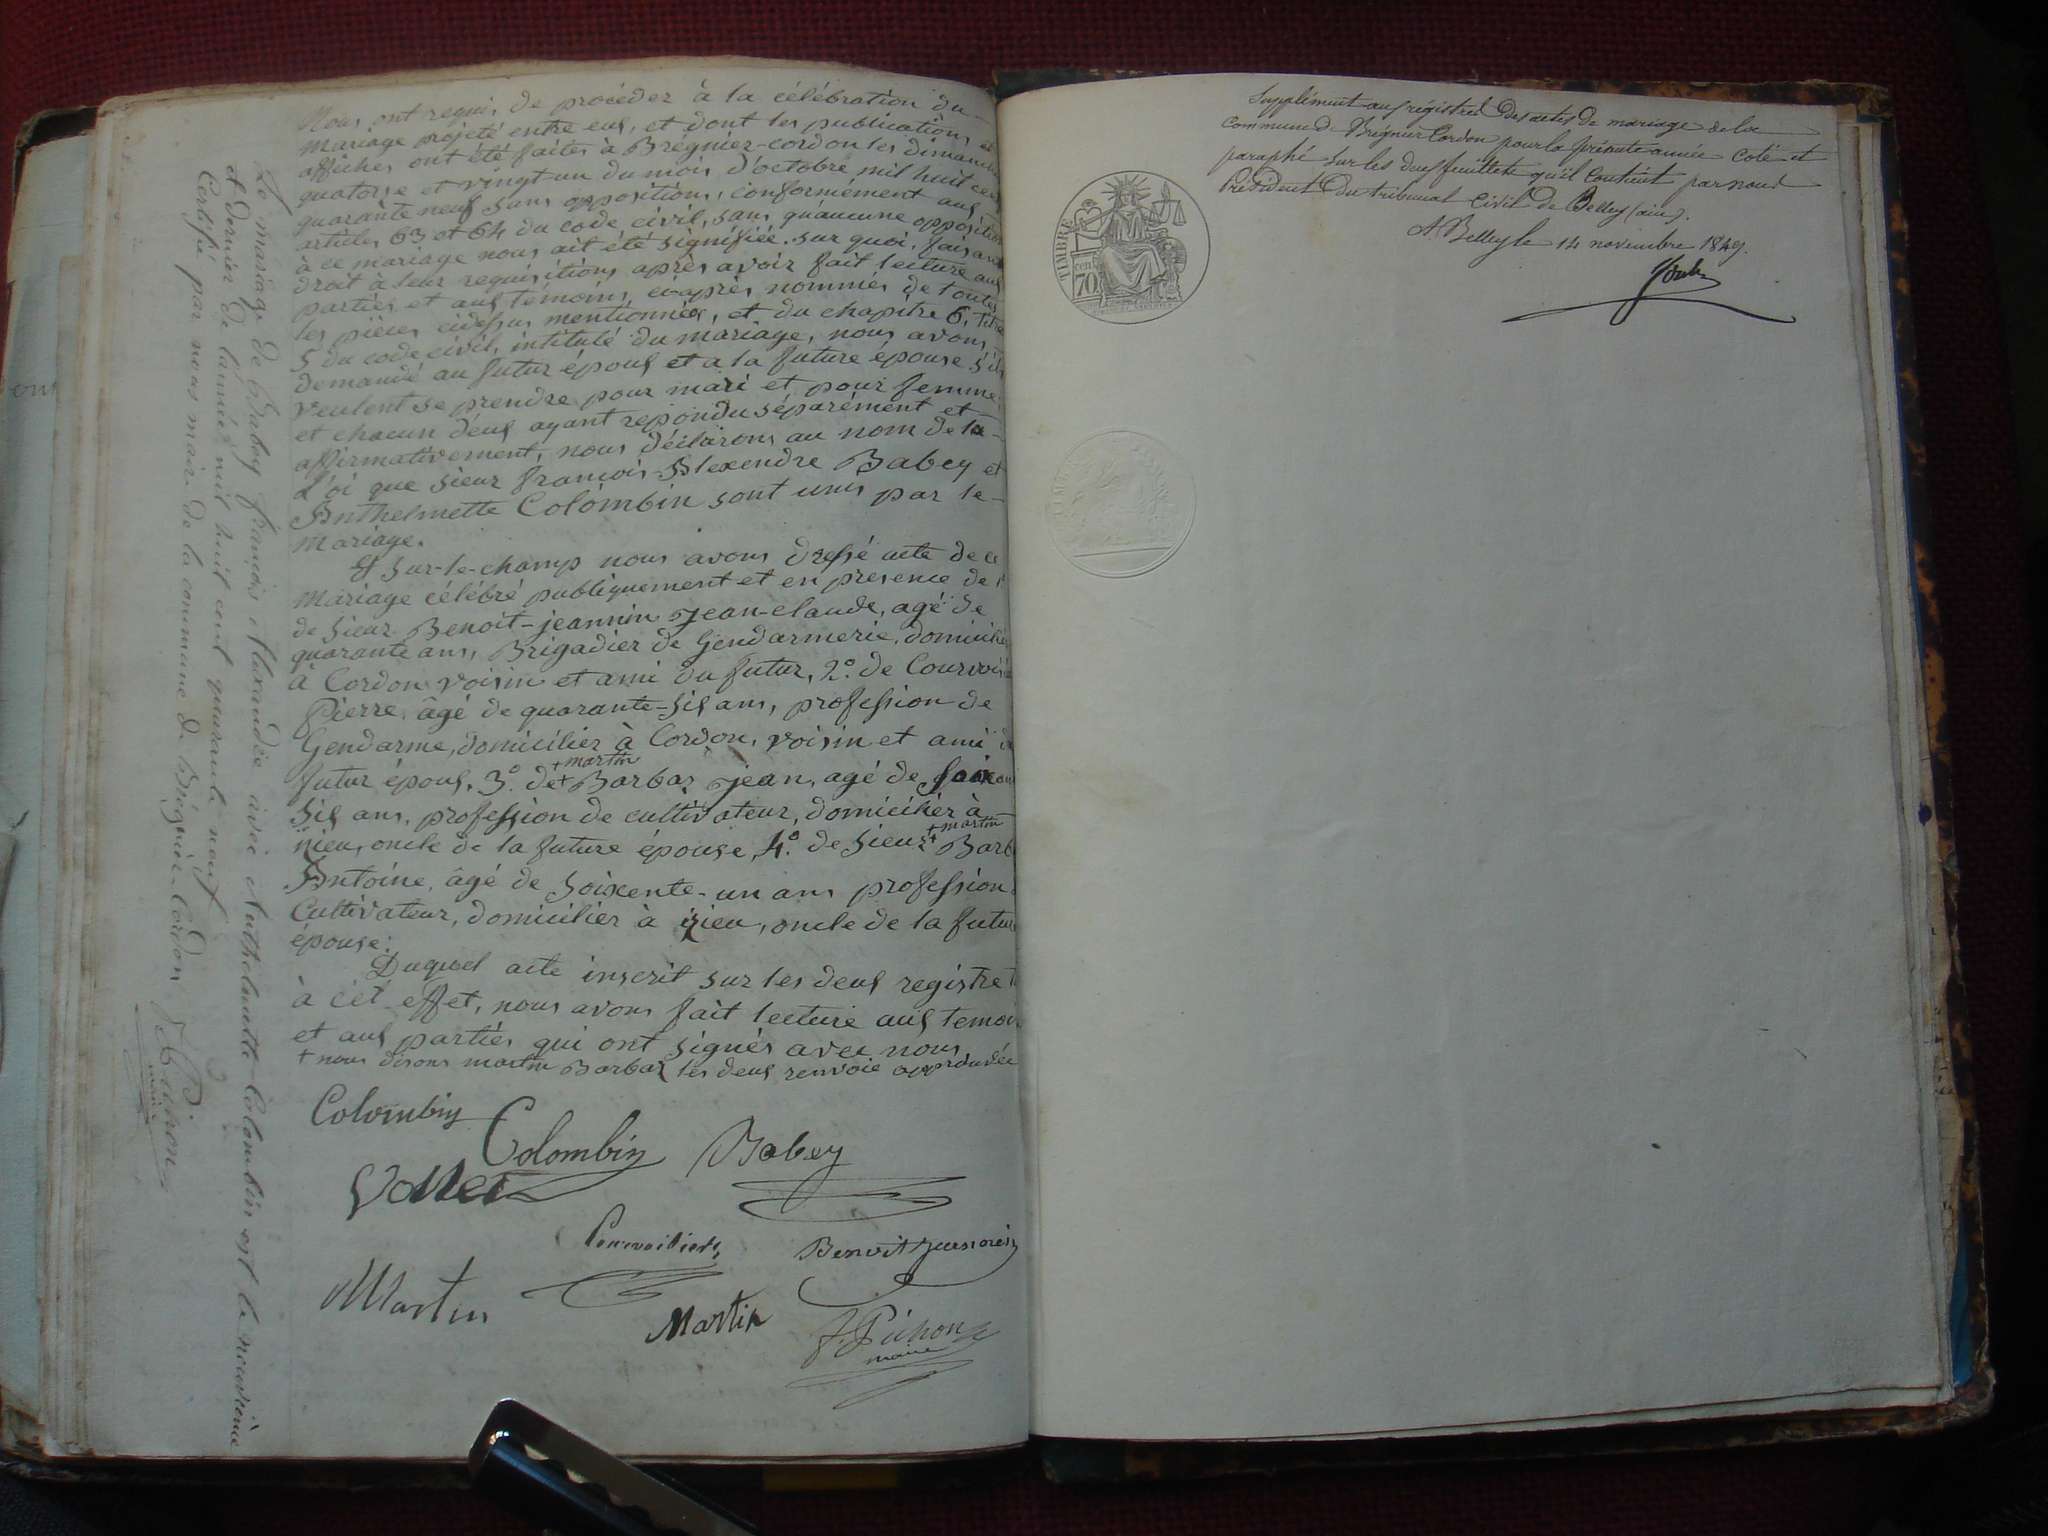 Nous ont requis de procéder à la célébration du
mariage projeté entre eus, et dont les publications et
affiches ont été faites à Brégnier-cordon les dimanches
quatorze et vingt un du mois d'octobre mil huit cent
quarante neuf sans oppositions, conformément aus
articles 63 et 64 du code civil, sans qu'aucune opposition
à ce mariage nous ait été signifiée. sur quoi, faisant
droit à leur requisitions après avoir fait lecture aus
parties et aus témoins, ci-après nommés de toutes
les pièces cidessus mentionnées, et du chapitre 6, titre
5 du code civil, intitulé du mariage, nous avons
demandé au futur épous et a la future épouse s'ils
veulent se prendre pour mari et pour femme,
et chacun d'eus ayant repondu séparément et
affirmativement, nous déclarons au nom de la
Loi que sieur françois-Alexendre Babey et
Anthelmette Colombin sont unis par le
mariage.
Et sur-le-champ nous avons dressé acte de ce
mariage célébré publiquement et en presence de 1°
de sieur Benoit-jeannin Jean-claude, agé de
quarante ans, Brigadier de Gendarmerie, domicilié
à Cordon voisin et ami du futur, 2° de Courvoi
Pierre, âgé de quarante-sis ans, profession de
Gendarme, domicilier à Cordon, voisin et ami du
+ martin
futur épous, 3° de + Barbaz Jean, agé de soixan
sis ans, profession de cultivateur, domicilier à
+ martin
izieu, oncle de la future épouse, 4° de sieur + Barb
Antoine, âgé de soixente-un ans profession
Cultivateur, domicilier à izieu, oncle de la futur
épouse.
Duquel acte inscrit sur les deus registre
à cet effet, nous avons fait lecture aus temoi
et aus parties qui ont signés avec nous
+ nous disons martin Barbaz les deus renvoie approuvée
Colombin
Colombin Babey
Vollet
Benoit Jeannin
Martin
Martin
J. Pichon
maire
Le mariage de Babey françois Alexandre avec Anthelmette Colombin est le neuvième
et dernier de l'année mil huit cent quarante neuf
Certifié par nous maire de la commune de Brégnier-Cordon
J. Pichon
maire
Supplément aus régistres des actes de mariage de la
commune de Brégnier Cordon pour la présente année coté et
paraphé sur les deus feuillets qu'il contient par nous
Président du tribunal civil de Belley (ain).
A Belley le 14 novembre 1849.
TIMBRE
cen.
70